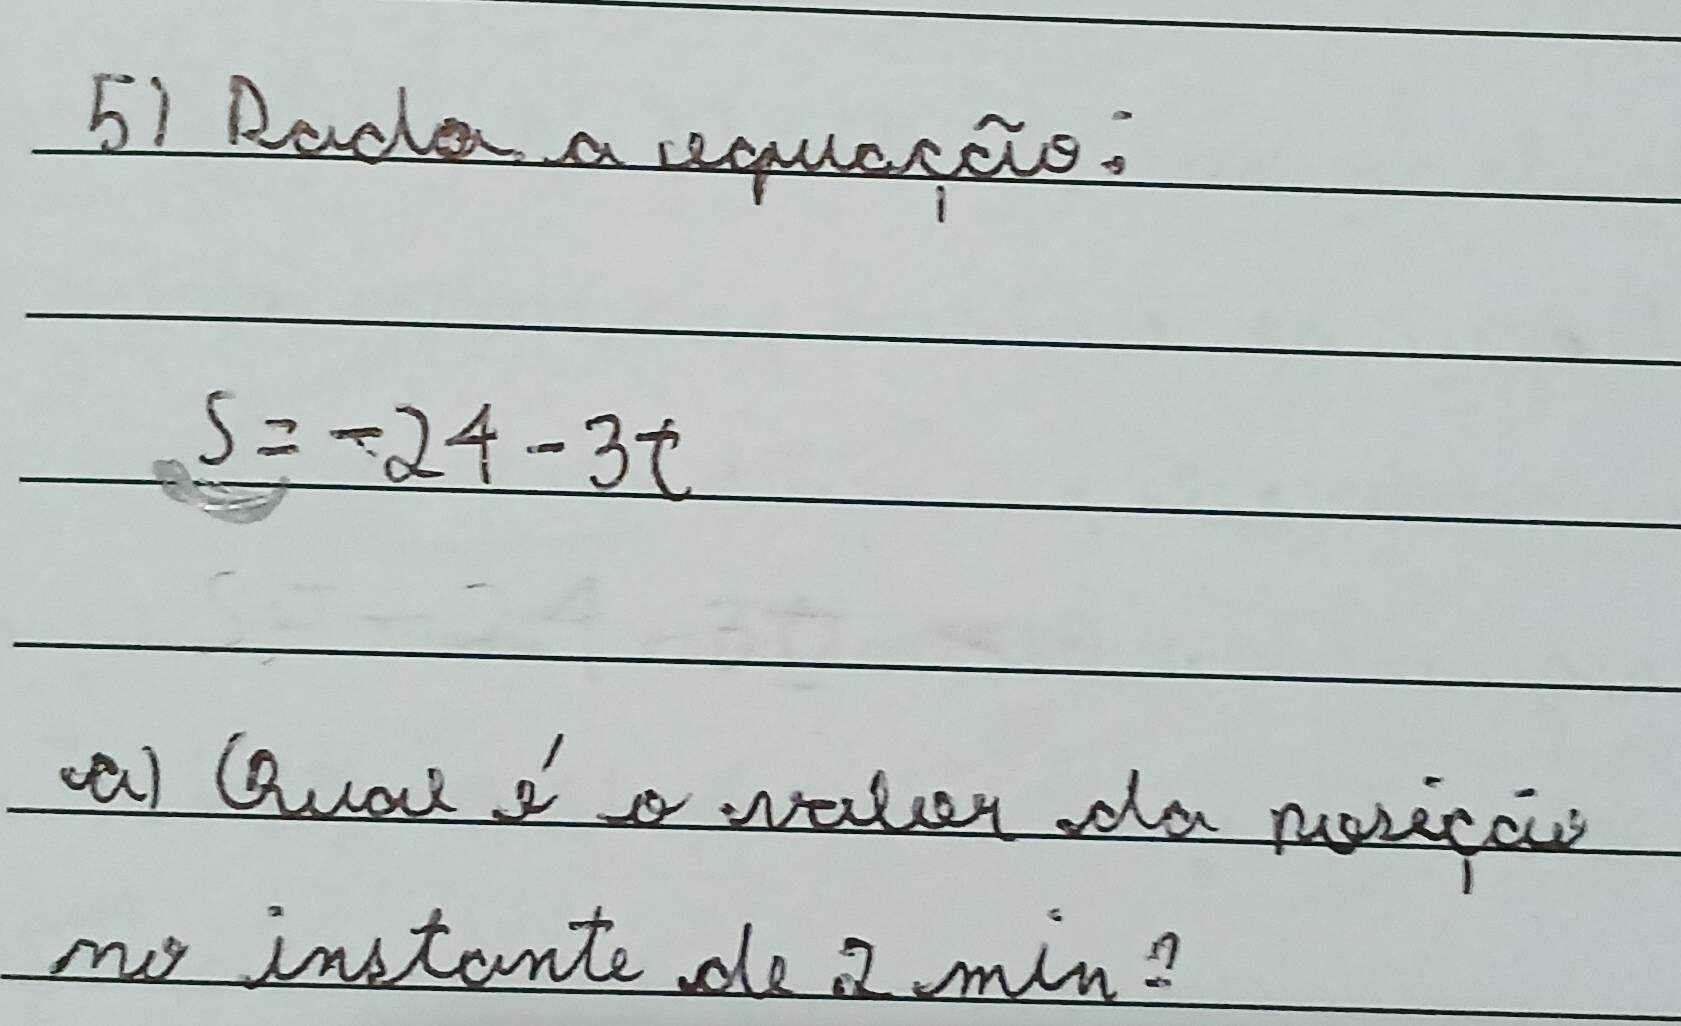 5) Dada a equação:
S = -24 - 3t
a) Qual é o valor da posição
no instante de 2 min?